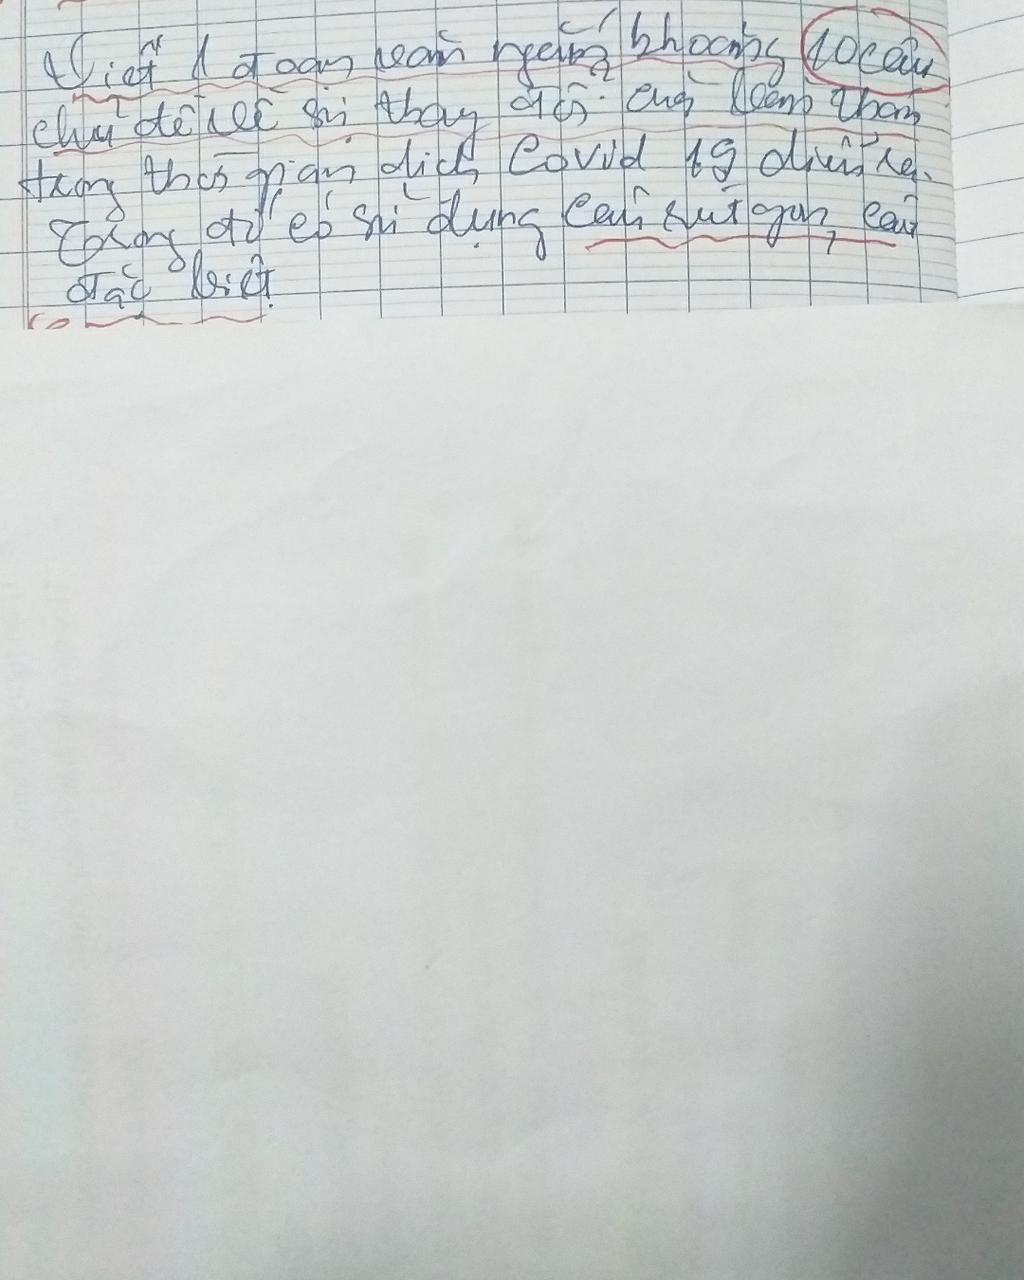 Viết 1 đoạn văn ngắn khoảng 10 câu
chủ đề về sự thay đổi của bản thân
trong thời gian dịch Covid 19 diễn ra.
Trong đó có sử dụng câu rút gọn, câu
đặc biệt.